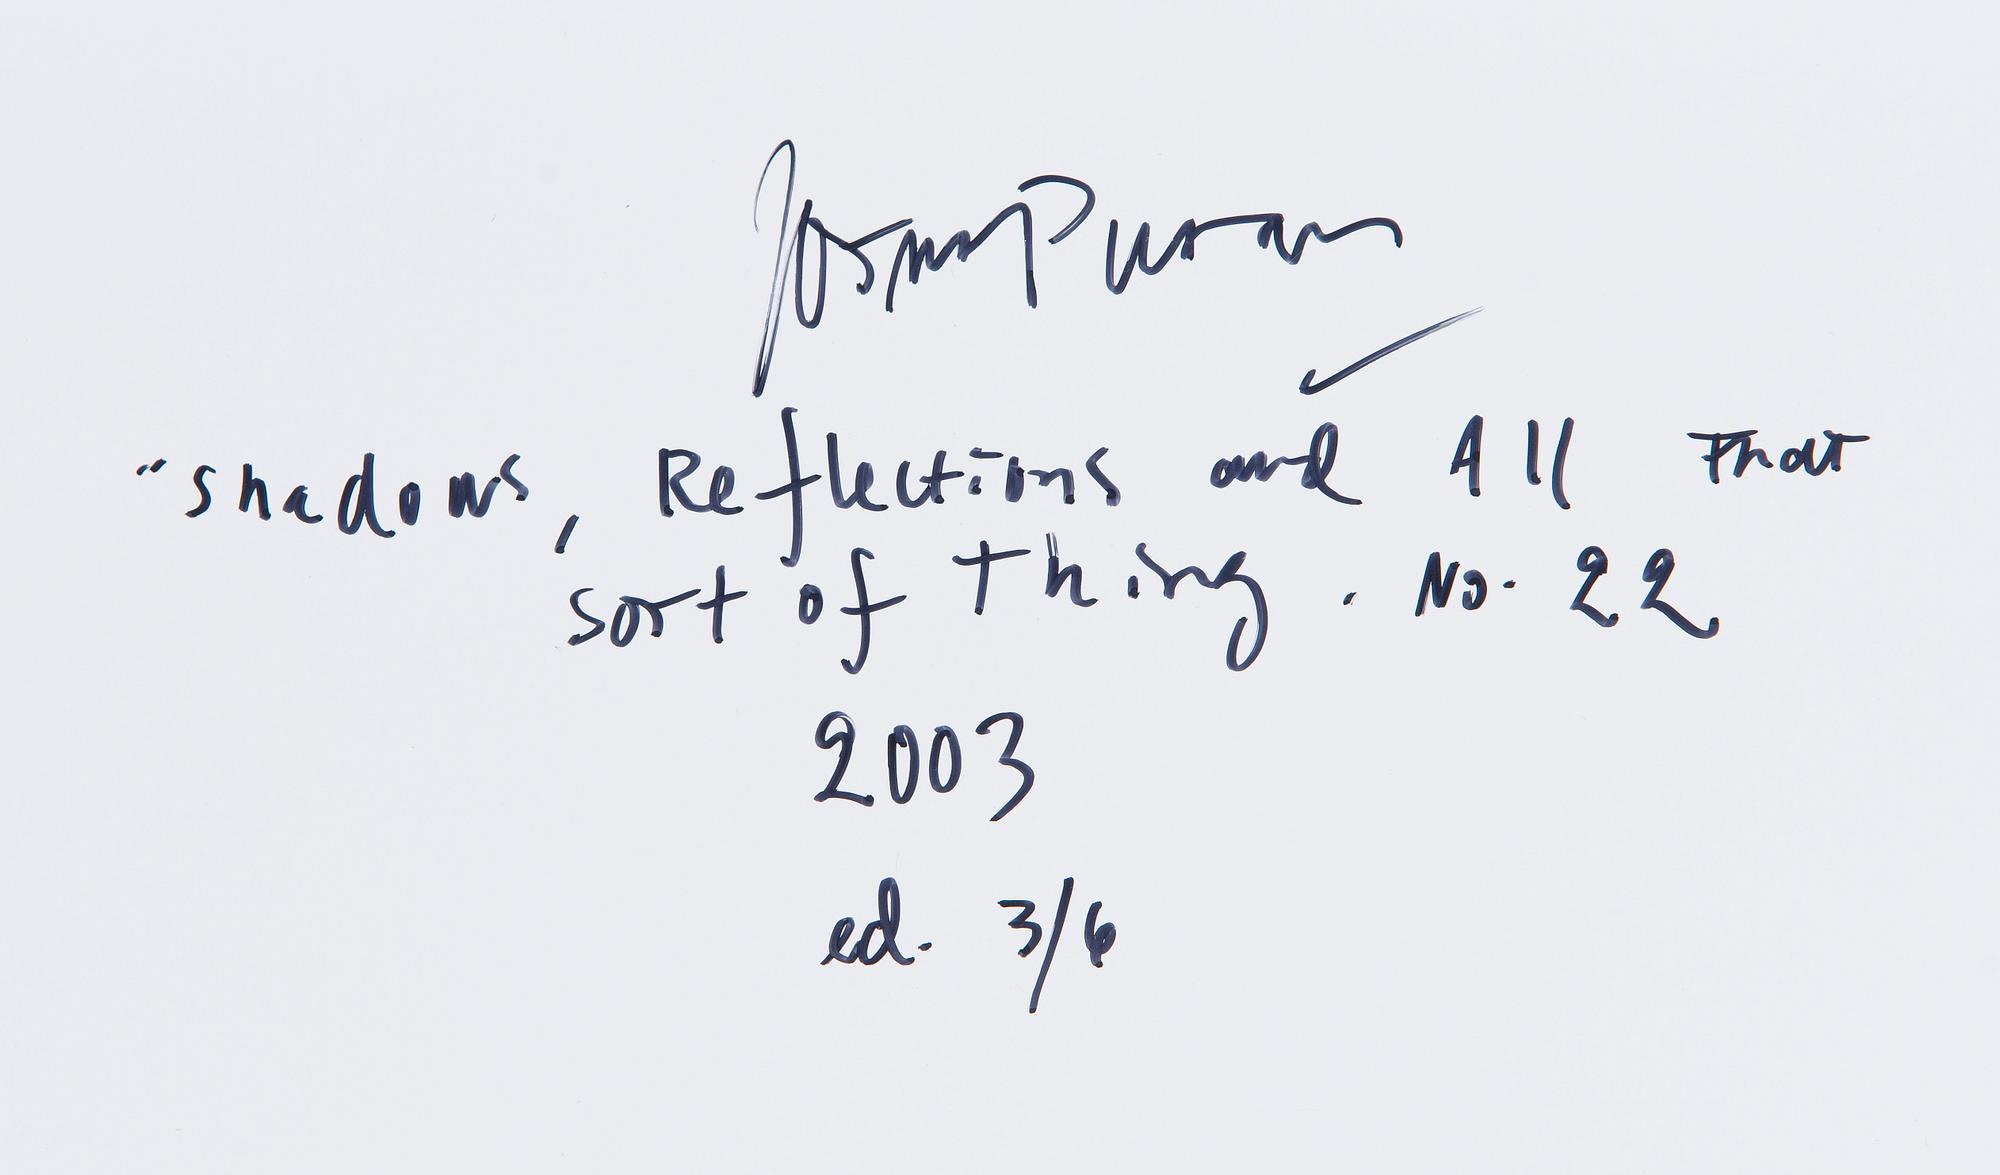 Jorma Puranen
"shadows, Reflections and All That
sort of Thing. No. 22
2003
ed. 3/6